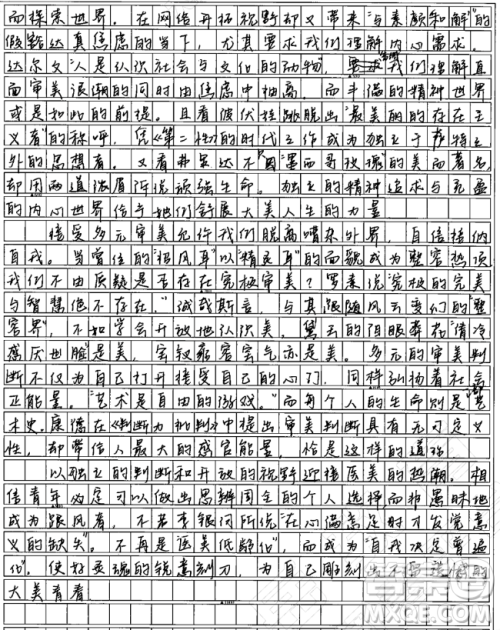 而探索世界。在网络开拓视野却又带来"与素颜和解"的
假豁达真焦虑的当下，尤其要求我们理解内心需求。
达尔文"人是认识社会与文化的动物"，要求我们理解直
面审美浪潮的同时由焦虑中抽离，而丰满的精神世界
或是如此的前提。且看波伏娃跳脱出"最美丽的存在主
义者"的称呼，凭《第二性》的时代之作成为独立于萨特之
外的思想者。又看弗里达不因"墨西哥玫瑰"的美而著名
却因两道浓眉诉说顽强生命。独立的精神追求与充盈
的内心世界给予她们舒展大美人生的力量
接受多元审美允许我们脱离嘈杂外界，自信接纳
自我。当常任的"招风耳"以"精灵耳"的面貌成为整容热项
我们不由质疑是否存在究极审美？罗素说"究极的完美
与智慧绝不存在。"诚哉斯言，与其跟随风云变幻的"整
容界"，不如学会开放地认识美。黛玉的阴眼弃"清冷
感厌世脸"是美，宝钗雍容富气亦是美。多元的审美判
断不仅为自己打开接受自己的心门，同样弘扬着社会
正能量。"艺术是自由的游戏。"而每个人的生命则是"艺
术史。康德在《判断力批判》中提出审美判断具有无可定义
性，却带给人最大的感官能量，恰是这样的道理
以独立的判断和开放的视野迎接医美的热潮，相
信青年必定可以做出思辨周全的个人选择而非愚昧地
成为跟风者，不若李银河所说"在心满意足时才发觉意
义的缺失"。不再是"医美低龄化"，而成为"自我决定普遍
化"。使好灵魂的锐意刻刀，为自己雕刻出不可逆的
大美青春